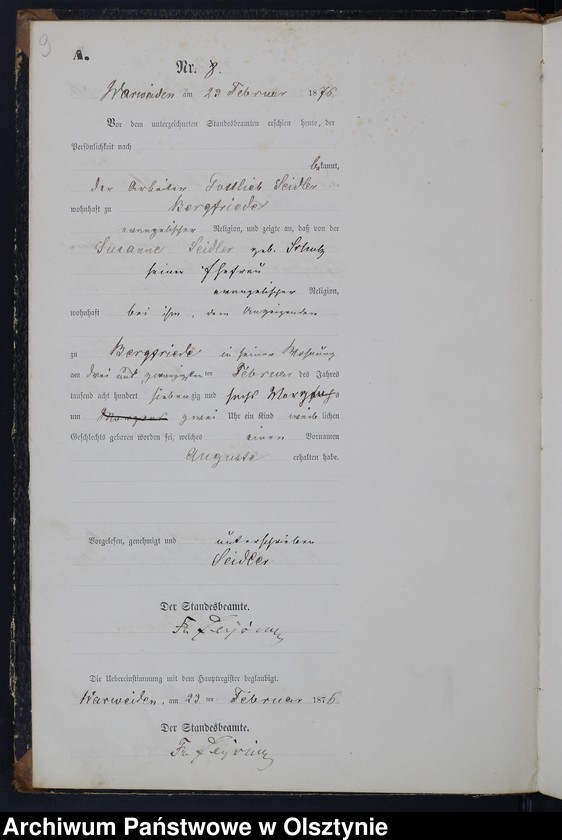 9
A.
Nr. 8.
Warweiden am 23 Februar 1876
Vor dem unterzeichneten Standesbeamten erschien heute, der
Persönlichkeit nach
bekannt,
der Arbeiter Gottlieb Seidler
wohnhaft zu Bergfriede
evangelischer Religion, und zeigte an, daß von der
Susanne Seidler geb.
seiner Ehefrau
evangelischer Religion,
wohnhaft bei ihm, dem Anzeigenden
zu Bergfriede in seiner Wohnung
am drei und zwanzigsten ten Februar des Jahres
tausend acht hundert siebenzig und sechs Morgens
um Morgens zwei Uhr ein Kind weib lichen
Geschlechts geboren worden sei, welches einen Vornamen
Auguste erhalten habe.
Vorgelesen, genehmigt und unterschrieben
Seidler
Der Standesbeamte.
Fr.
Die Uebereinstimmung mit dem Hauptregister beglaubigt.
Warweiden, am 23 ten Februar 1876
Der Standesbeamte.
Fr.
Archiwum Państwowe w Olsztynie